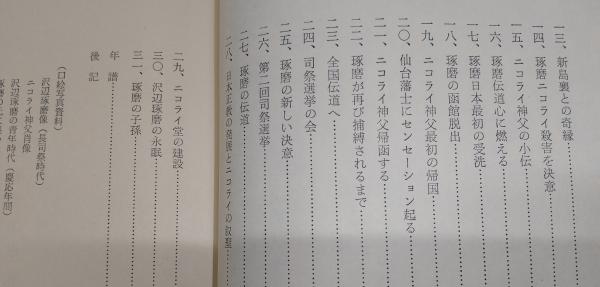 一三、新島襄との奇縁
一四、琢磨ニコライ殺害を決意
一五、ニコライ神父の小伝
一六、琢磨伝道心に燃える
一七、琢磨日本最初の受洗
一八、琢磨の函館脱出
一九、ニコライ神父最初の帰国
二〇、仙台藩士にセンセーション起る
二一、ニコライ神父帰函する
二二、琢磨が再び捕縛されるまで
二三、全国伝道へ
二四、司祭選挙の会
二五、琢磨の新しい決意
二六、第二回司祭選挙
二七、琢磨の伝道
二八、日本正教の発展とニコライの叙聖
二九、ニコライ堂の建設
三〇、沢辺琢磨の永眠
三一、琢磨の子孫
年譜
後記
(口絵写真資料)
沢辺琢磨像(長司祭時代)
ニコライ神父肖像
沢辺琢磨の青年時代(慶応年間)